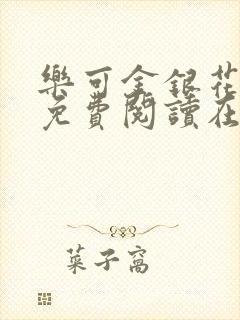 樂可金銀花
免費閱讀在
菜子窩